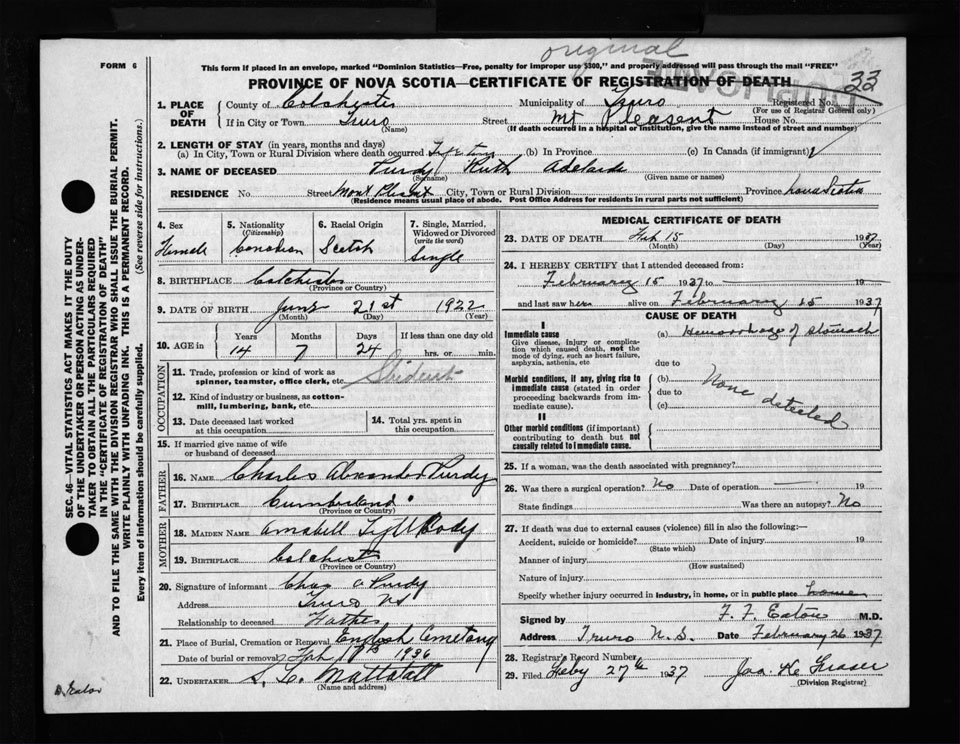 original
FORM 6
This form if placed in an envelope, marked "Dominion Statistics—Free, penalty for improper use $300," and properly addressed will pass through the mail "FREE"
PROVINCE OF NOVA SCOTIA—CERTIFICATE OF REGISTRATION OF DEATH
33
1. PLACE OF DEATH
County of Colchester Municipality of Truro Registered No.
(For use of Registrar General only)
If in City or Town Truro Street Mt Pleasent House No.
(Name) (If death occurred in a hospital or institution, give the name instead of street and number)
2. LENGTH OF STAY (in years, months and days)
(a) In City, Town or Rural Division where death occurred (b) In Province (c) In Canada (if immigrant)
3. NAME OF DECEASED Purdy Ruth Adelaide
(Surname) (Given name or names)
RESIDENCE No. Street Mont Plesent City, Town or Rural Division Province Nova Scotia
(Residence means usual place of abode. Post Office Address for residents in rural parts not sufficient)
4. Sex Female
5. Nationality (Citizenship) Canadian
6. Racial Origin Scotch
7. Single, Married, Widowed or Divorced (write the word) Single
8. BIRTHPLACE Colchester
(Province or Country)
9. DATE OF BIRTH June 21st 1922
(Month) (Day) (Year)
10. AGE in Years Months Days If less than one day old
14 7 24 hrs. or min.
OCCUPATION
11. Trade, profession or kind of work as spinner, teamster, office clerk, etc. Student
12. Kind of industry or business, as cotton-mill, lumbering, bank, etc.
13. Date deceased last worked at this occupation
14. Total yrs. spent in this occupation
15. If married give name of wife or husband of deceased
FATHER
16. NAME Charles Alexander Purdy
17. BIRTHPLACE Cumberland
(Province or Country)
MOTHER
18. MAIDEN NAME
19. BIRTHPLACE Colchester
(Province or Country)
20. Signature of informant Chas A Purdy
Address Truro NS
Relationship to deceased Father
21. Place of Burial, Cremation or Removal English Cemetary
Date of burial or removal Feb 17th 1936
22. UNDERTAKER
(Name and address)
MEDICAL CERTIFICATE OF DEATH
23. DATE OF DEATH Feb 15 1937
(Month) (Day) (Year)
24. I HEREBY CERTIFY that I attended deceased from:
February 15 1937 to 19
and last saw her alive on February 15 1937
CAUSE OF DEATH
I
Immediate cause
Give disease, injury or complication which caused death, not the mode of dying, such as heart failure, asphyxia, asthenia, etc
(a) Hemorrhage of stomach
due to
Morbid conditions, if any, giving rise to immediate cause (stated in order proceeding backwards from immediate cause).
(b) None detected
due to
(c)
II
Other morbid conditions (if important) contributing to death but not causally related to immediate cause.
25. If a woman, was the death associated with pregnancy?
26. Was there a surgical operation? No Date of operation 19
State findings Was there an autopsy? No
27. If death was due to external causes (violence) fill in also the following:—
Accident, suicide or homicide? Date of injury 19
(State which)
Manner of injury
(How sustained)
Nature of injury
Specify whether injury occurred in industry, in home, or in public place home
Signed by F. F. Eaton M.D.
Address Truro N.S. Date February 26 1937
28. Registrar's Record Number
29. Filed Feby 27th 1937 Jas. K. Fraser
(Division Registrar)
SEC. 46—VITAL STATISTICS ACT MAKES IT THE DUTY
OF THE UNDERTAKER OR PERSON ACTING AS UNDER-
TAKER TO OBTAIN ALL THE PARTICULARS REQUIRED
IN THE "CERTIFICATE OF REGISTRATION OF DEATH"
AND TO FILE THE SAME WITH THE DIVISION REGISTRAR WHO SHALL ISSUE THE BURIAL PERMIT.
WRITE PLAINLY WITH UNFADING INK. THIS IS A PERMANENT RECORD.
Every item of information should be carefully supplied. (See reverse side for instructions.)
D. Eaton